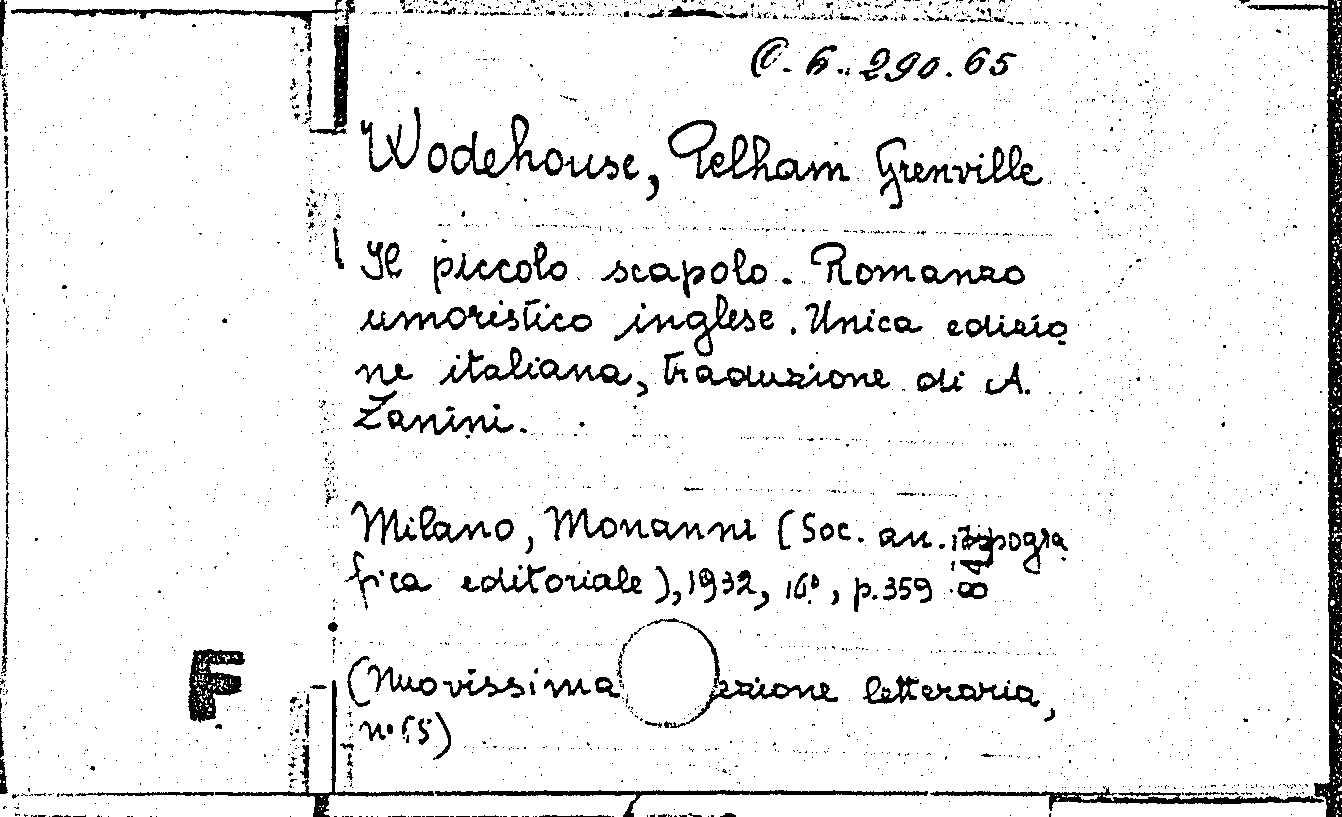 C. 6. 290. 65
Wodehouse, Pelham Grenville
Il piccolo scapolo. Romanzo
umoristico inglese. Unica edizio
ne italiana, traduzione di A.
Zanini.
Milano, Monanni (Soc. an. tipogra
fica editoriale), 1932, 16º, p. 359
(Nuovissima ezione letteraria,
F